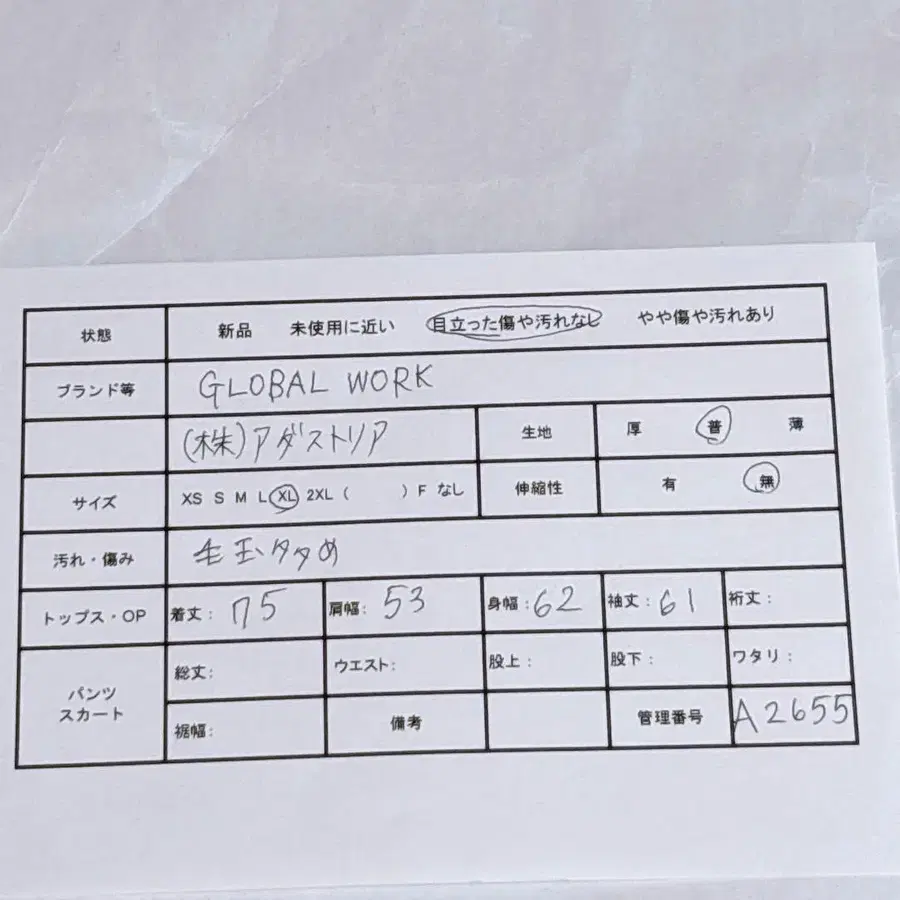 状態 新品 未使用に近い 目立った傷や汚れなし やや傷や汚れあり
ブランド等 GLOBAL WORK
(株)アダストリア 生地 厚 普 薄
サイズ XS S M L XL 2XL ( ) F なし 伸縮性 有 無
汚れ・傷み 毛玉タタめ
トップス・OP 着丈: 75 肩幅: 53 身幅: 62 袖丈: 61 裄丈:
パンツ スカート 総丈: ウエスト: 股上: 股下: ワタリ:
裾幅: 備考 管理番号 A2655